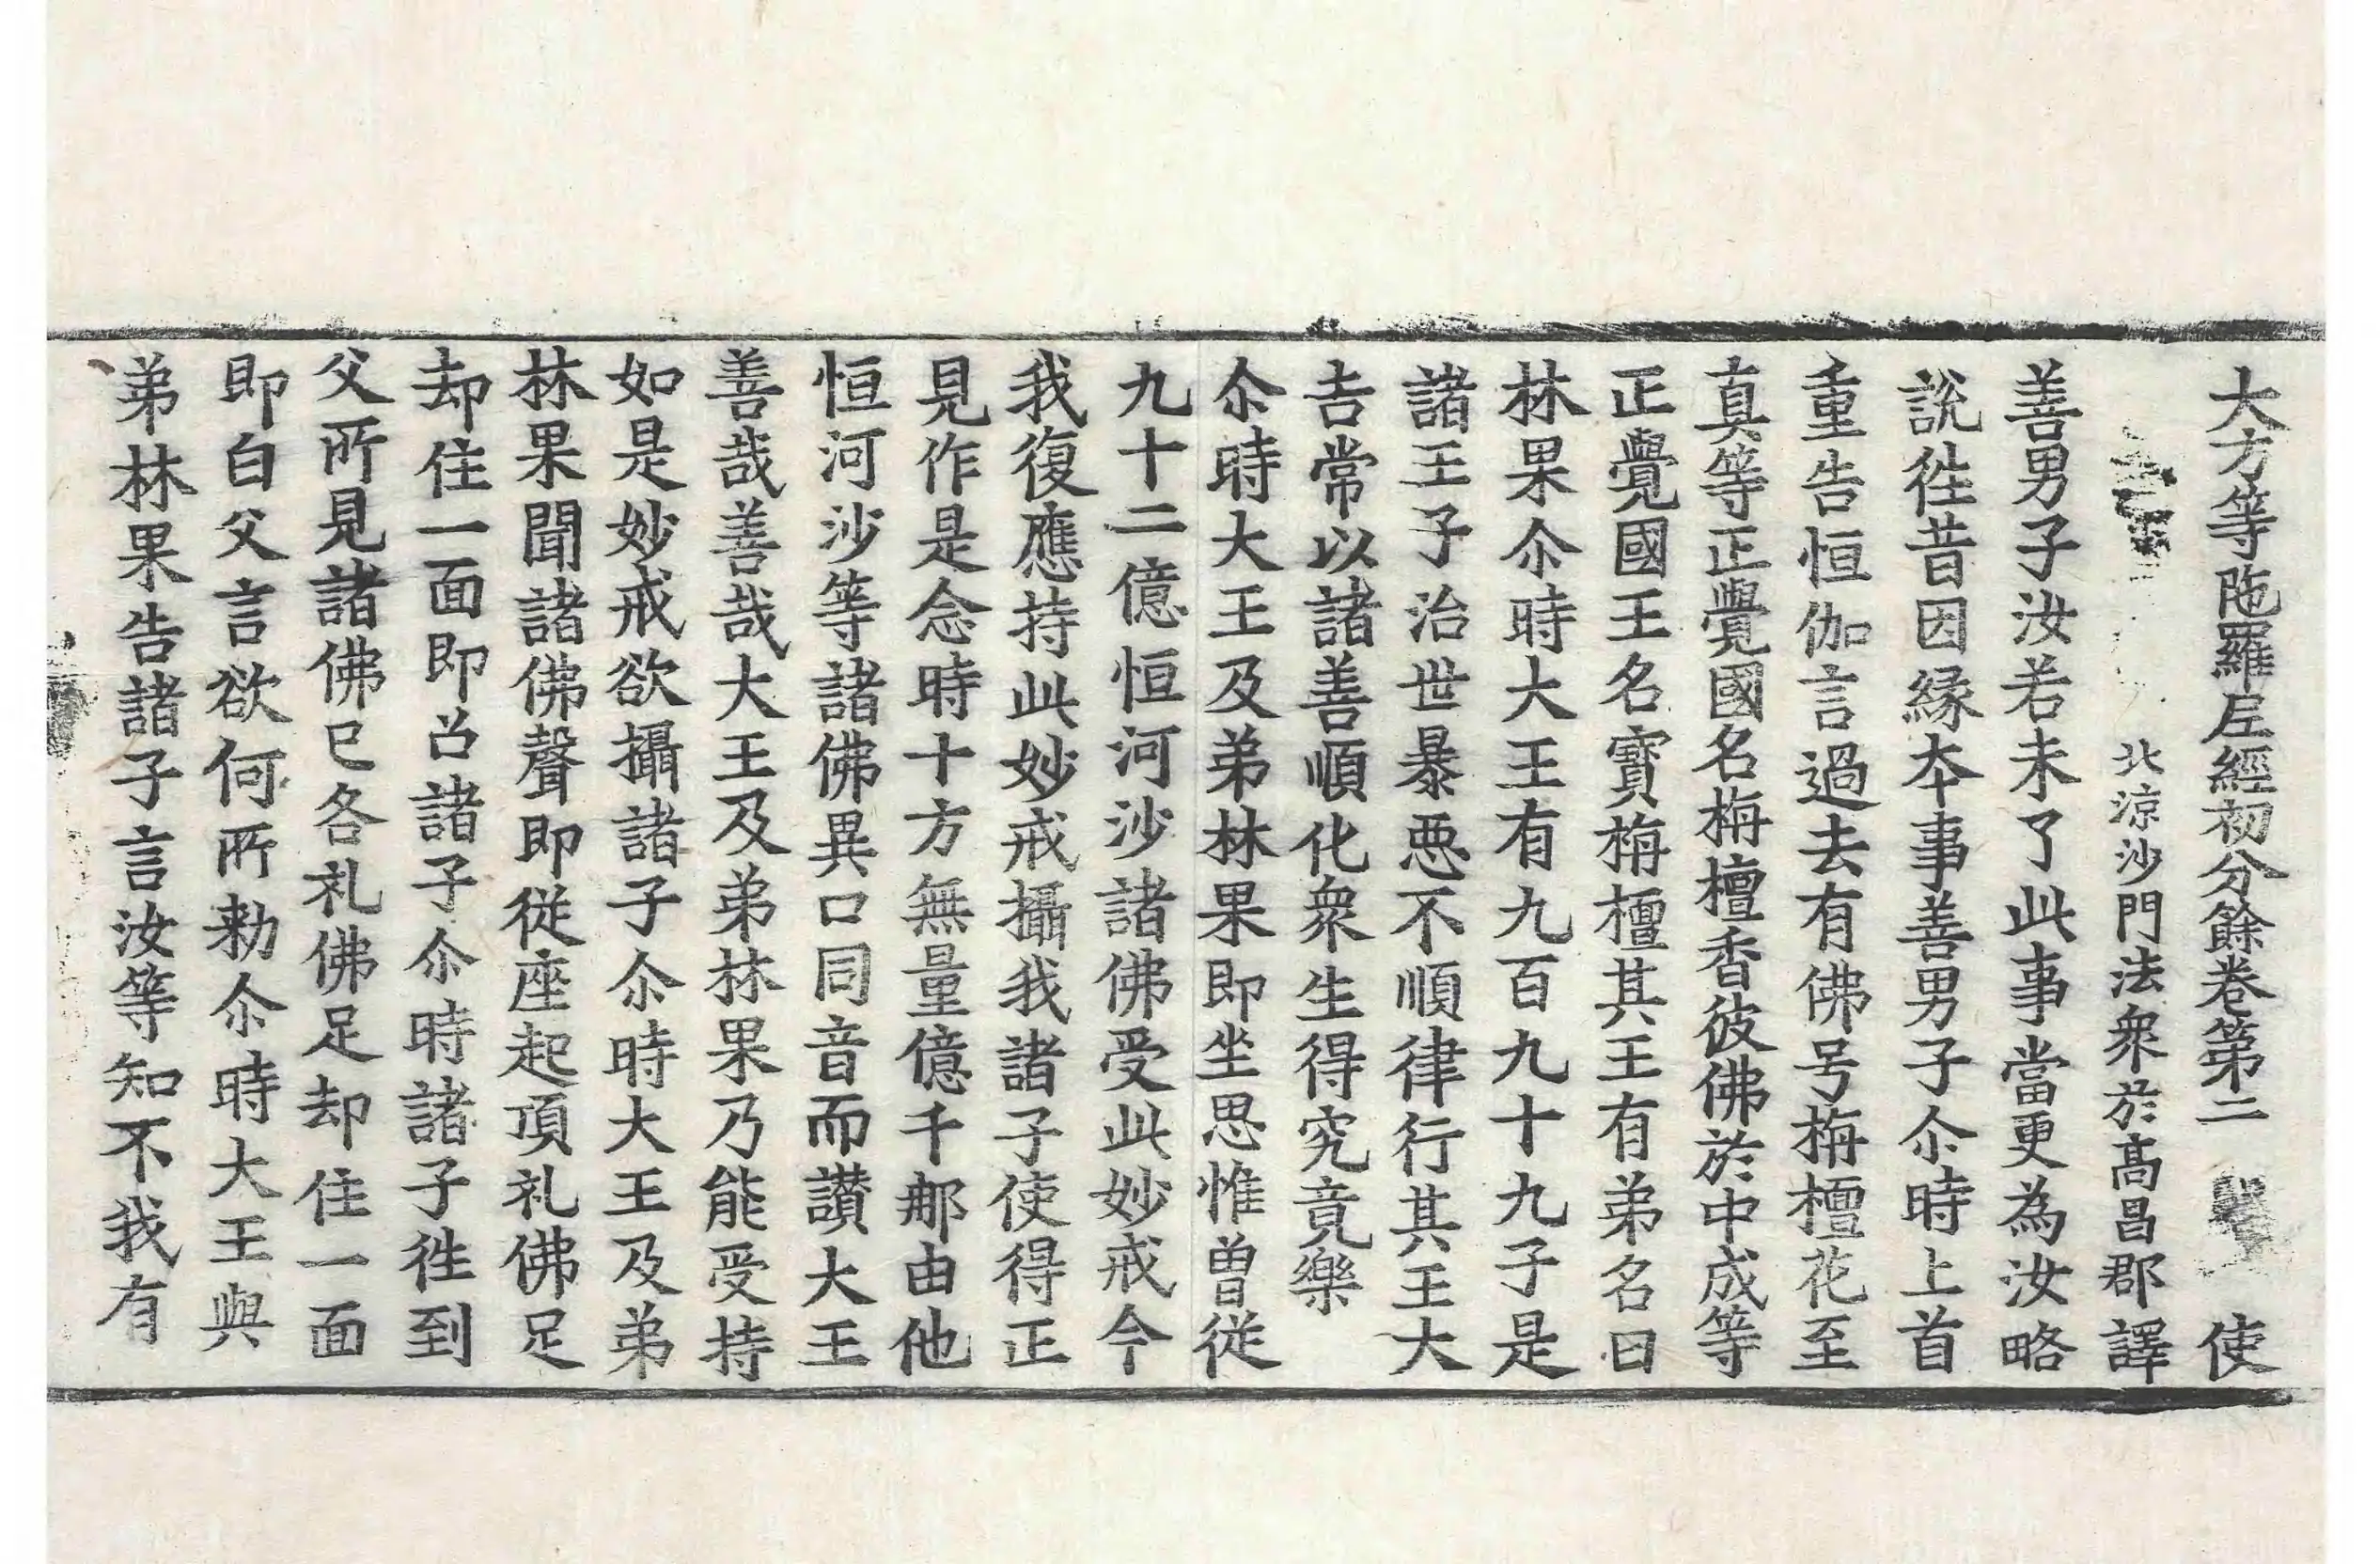 大方等陁羅尼經初分餘卷第二 使
北涼沙門法衆於高昌郡譯
善男子汝若未了此事當更為汝略
說徃昔因縁本事善男子尒時上首
重告恒伽言過去有佛号栴檀花至
真等正覺國名栴檀香彼佛於中成等
正覺國王名寶栴檀其王有弟名曰
林果尒時大王有九百九十九子是
諸王子治世暴悪不順律行其王大
吉常以諸善順化衆生得究竟樂
尒時大王及弟林果即坐思惟曽從
九十二億恒河沙諸佛受此妙戒今
我復應持此妙戒攝我諸子使得正
見作是念時十方無量億千那由他
恒河沙等諸佛異口同音而讃大王
善哉善哉大王及弟林果乃能受持
如是妙戒欲攝諸子尒時大王及弟
林果聞諸佛聲即從座起頂礼佛足
却住一面即召諸子尒時諸子徃到
父所見諸佛已各礼佛足却住一面
即白父言欲何所勑尒時大王與
弟林果告諸子言汝等知不我有